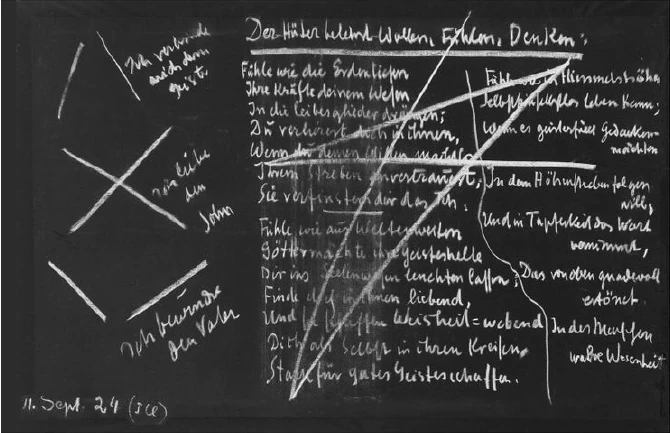 Ich verbinde
mich dem
Geist
ich liebe
den
Sohn
Ich bewundre
den Vater
11. Sept. 24
Der Hüter belehrt Wollen, Fühlen, Denken:
Fühle wie die Erdentiefen
Ihre Kräfte deinem Wesen
In die Leibesglieder drängen;
Du verlierest dich in ihnen,
Wenn du deinen Willen machtlos
Ihrem Streben anvertrauest;
Sie verfinstern dir das Ich.
Fühle wie aus Weltenweiten
Göttermächte ihre Geisteshelle
Dir ins Seelenwesen leuchten lassen;
Finde dich in ihnen liebend,
Und sie schaffen Weisheit=webend
Dich als Selbst in ihren Kreisen
Stark für gutes Geistesschaffen.
Fühle wie in Himmelshöhen
Selbstsein selbstlos leben kann,
Wenn es geisterfüllt Gedanken=
mächten
In dem Höhenstreben folgen
will,
Und in Tapferkeit das Wort
vernimmt,
Das von oben gnadevoll
ertönet
In der Menschen
wahre Wesenheit